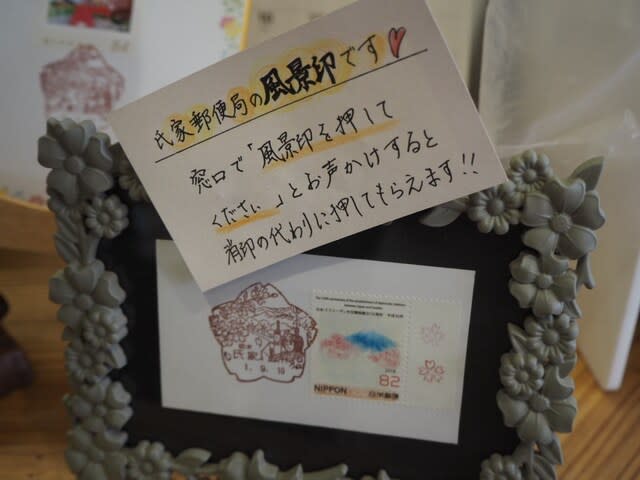 氏家郵便局の風景印です
窓口で「風景印を押して
ください」とお声かけすると
消印の代わりに押してもらえます!!
氏家
1.9.19
2018
82
NIPPON
日本郵便